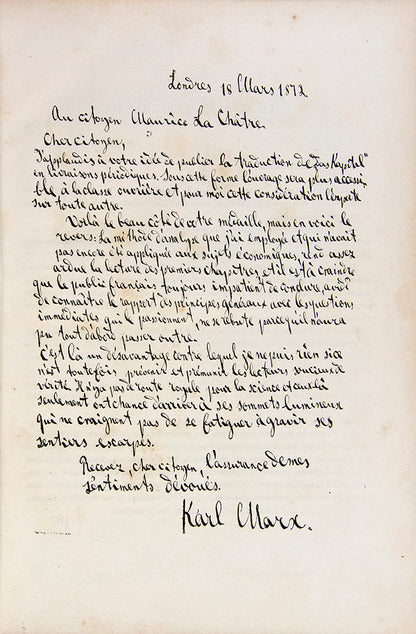 Londres 18 Mars 1872
Au citoyen Maurice La Châtre.
Cher citoyen,
J'applaudis à votre idée de publier la traduction de „Das Kapital"
en livraisons périodiques. Sous cette forme l'ouvrage sera plus accessi-
ble à la classe ouvrière et pour moi cette considération l'emporte
sur toute autre.
Voilà le beau côté de votre médaille, mais en voici le
revers: La méthode d'analyse que j'ai employée et qui n'avait
pas encore été appliquée aux sujets économiques, rend assez
ardue la lecture des premiers chapitres, et il est à craindre
que le public français toujours impatient de conclure, avide
de connaître le rapport des principes généraux avec les questions
immédiates qui le passionnent, ne se rebute parce qu'il n'aura
pu tout d'abord passer outre.
C'est là un désavantage contre lequel je ne puis rien si ce
n'est toutefois prévenir et prémunir les lecteurs soucieux de
vérité. Il n'y a pas de route royale pour la science et ceux là
seulement ont chance d'arriver à ses sommets lumineux
qui ne craignent pas de se fatiguer à gravir ses
sentiers escarpés.
Recevez, cher citoyen, l'assurance de mes
sentiments dévoués.
Karl Marx.